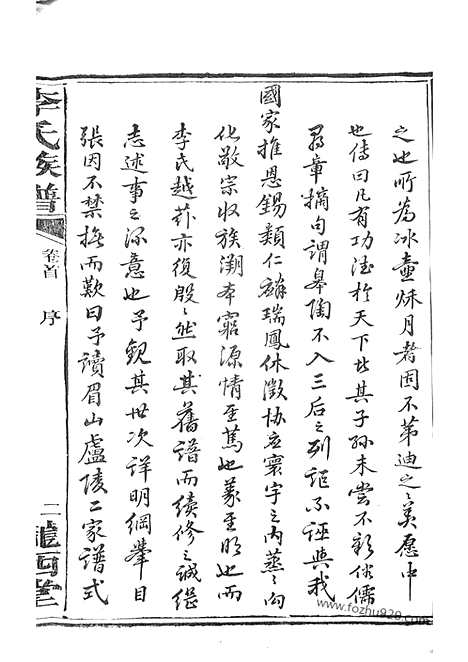 之也所為冰壺秋月者固不第迪之美愿中
也傳曰凡有功德於天下者其子孫未嘗不彰俗儒
尋章摘句謂皋陶不入三后之列詎不誣與我
國家推恩錫類仁麟瑞鳳休徵協應寰宇之內蒸蒸向
化敬宗收族溯本窮源情至篤也義至明也而
李氏越莽亦復殷殷然取其舊譜而續修之誠繼
志述事之深意也予觀其世次詳明綱舉目
張因不禁撫而歎曰予讀眉山廬陵二家譜式
李氏族譜
卷首 序
二
隴西堂
www.fozhu920.com